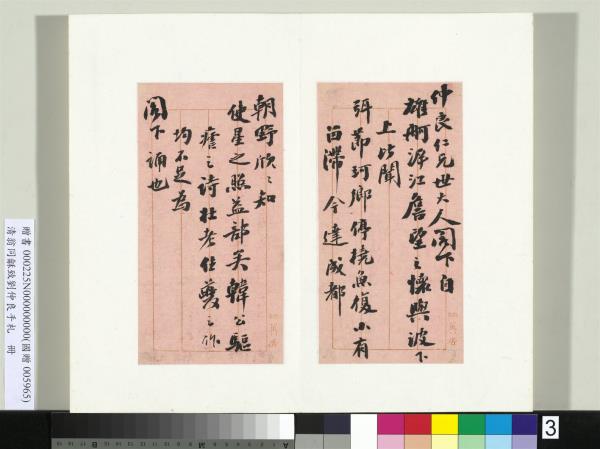 仲良仁兄世大人閣下自
雄舸泝江詹望之懷與波下
上比聞
弭節珂鄉停橈魚復小有
留滯今達成都
朝野欣〻知
使星之照益部矣韓公驅
瘧之詩杜老住夔之作
均不足為
閣下誦也
贈書 000225N000000000(國贈 005965)
清翁同龢致劉仲良手札 冊
3